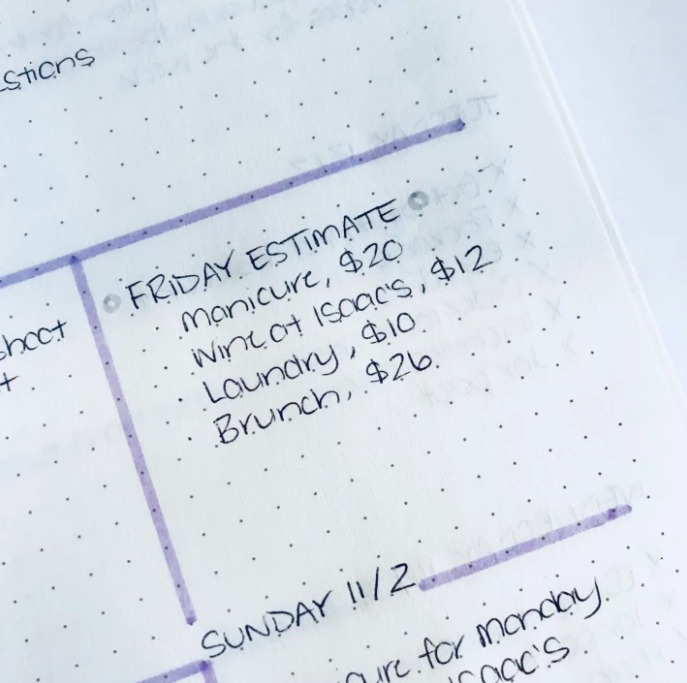 FRIDAY ESTIMATE
manicure, $20
wine at Isaac's, $12
Laundry, $10
Brunch, $26
SUNDAY 11/2
for monday
Isaac's